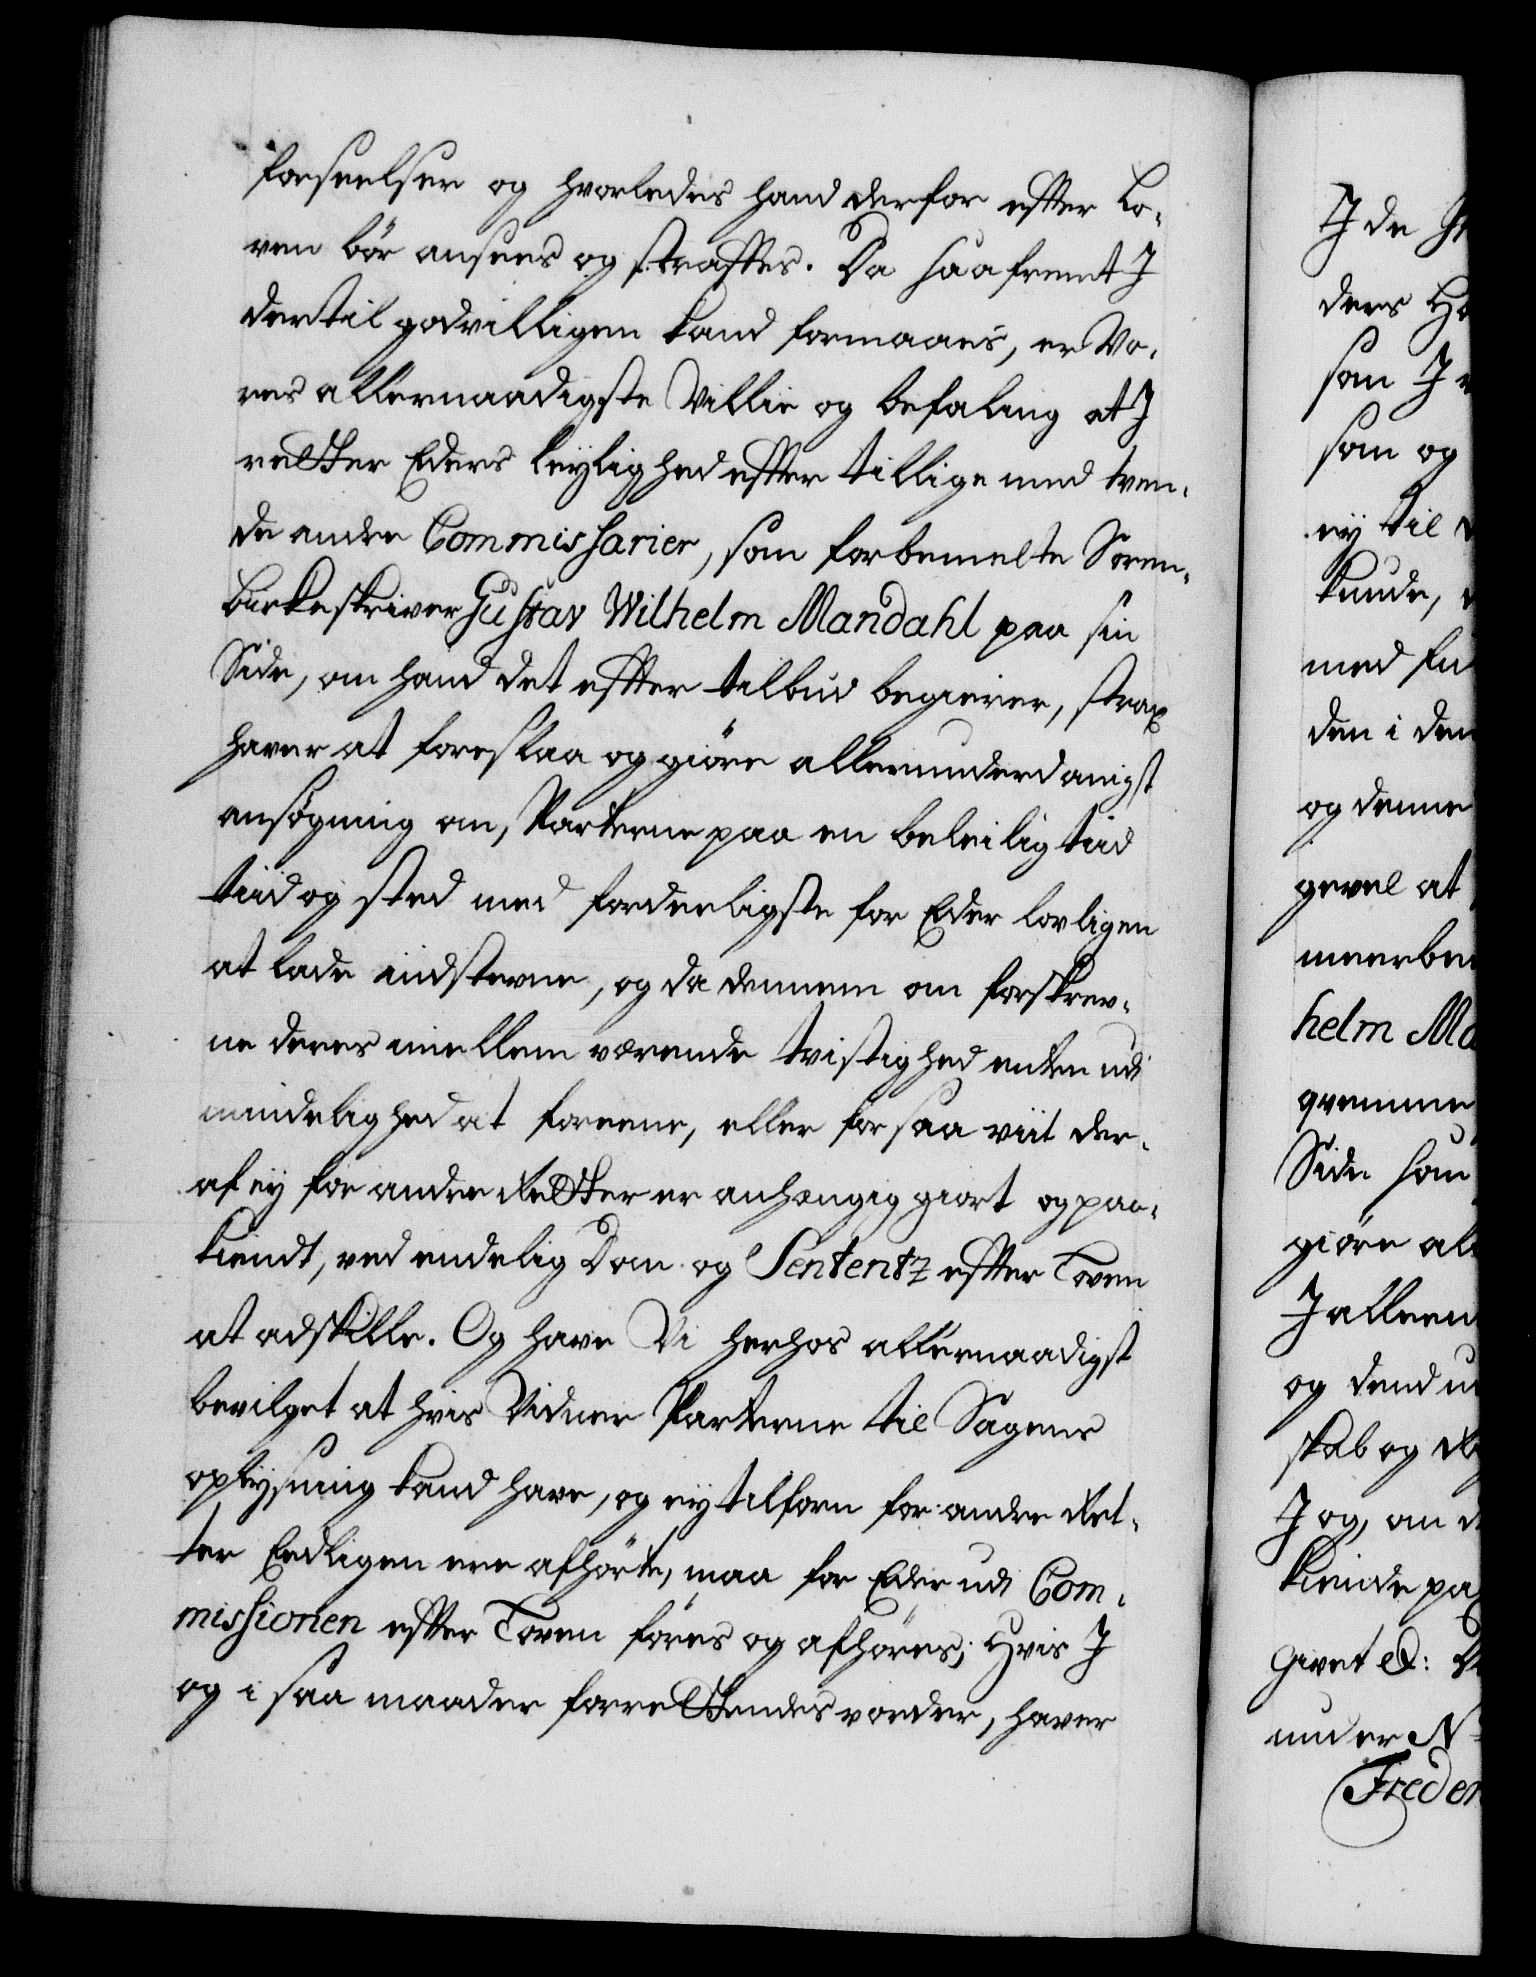 forseelser og hvorledes hand derfor efter Lo-
ven bør ansees og straffes. Da saafremt I
dertil godvilligen kand formaaes, er Vo-
res allernaadigste Villie og befaling at I
retter Eders leylighed efter tillige med tven-
de andre Commissarier, som forbemelte Soren-
birkeskriver Gustav Wilhelm Mandahl paa sin
Side, om hand det efter tilbud begierer, strax
haver at foreslaa og giöre allerunderdanigst
ansøgning om, Parterne paa en beleilig tiid
tiid og sted med forderligste for Eder lovligen
at lade indstevne, og da dennem om forskrev-
ne deres imellem værende tvistighed enten udi
mindelighed at foreene, eller for saa viit der-
af ey for andre Retter er anhængig giort og paa-
kiendt, ved endelig Dom og Sententz efter Loven
at adskille. Og have Vi herhos allernaadigst
bevilget at hvis Vidner Parterne til Sagens
oplysning kand have, og ey tilforn for andre Ret-
ter Eedligen ere afhörte, maa for Eder udi Com-
missionen efter Loven föres og afhöres; Hvis I
og i saa maader forrettendes vorder, haver
I de
ders
som I
som og
ey til
kunde,
med
den i den
og denne
gevel at
helm
Side
giöre
I alleene
og dend
skab og
I og, om
kiende
Givet &:
under